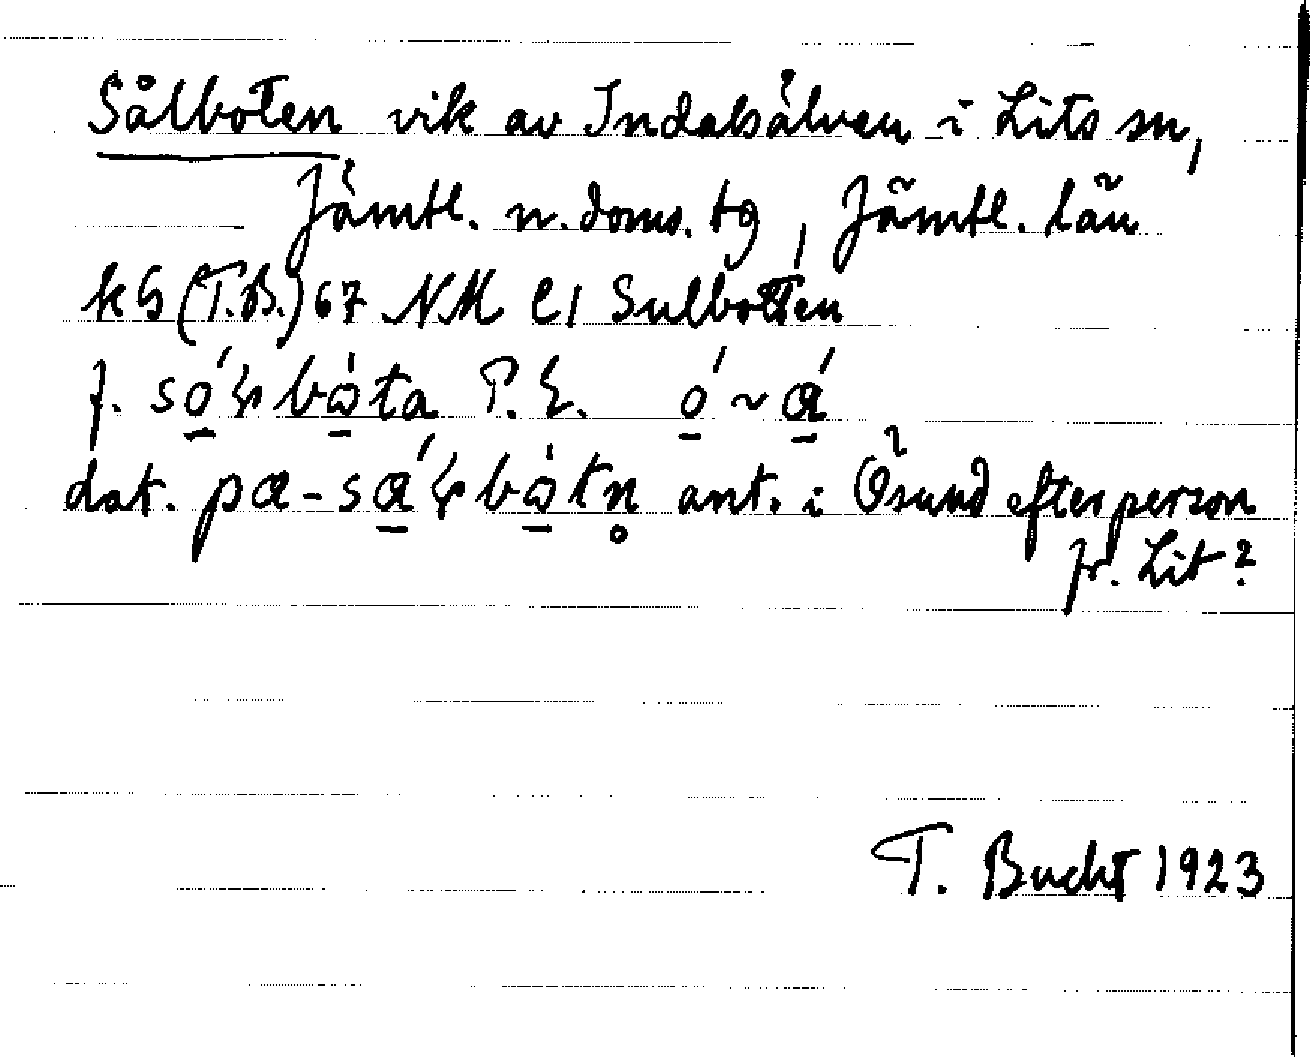 Sålboten vik av Indalsälven i Lits sn,
Jämtl. n. doms. tg, Jämtl. län
kG (T.B.) 67 NM C1 Sulbotten
f. sǫ́ɫbǫ̀ta P.E. ǫ́ ~ ą́
dat. pa-są́ɫbǫ̀tn̥ ant. i Ösund efter person
fr. Lit?
T. Bucht 1923